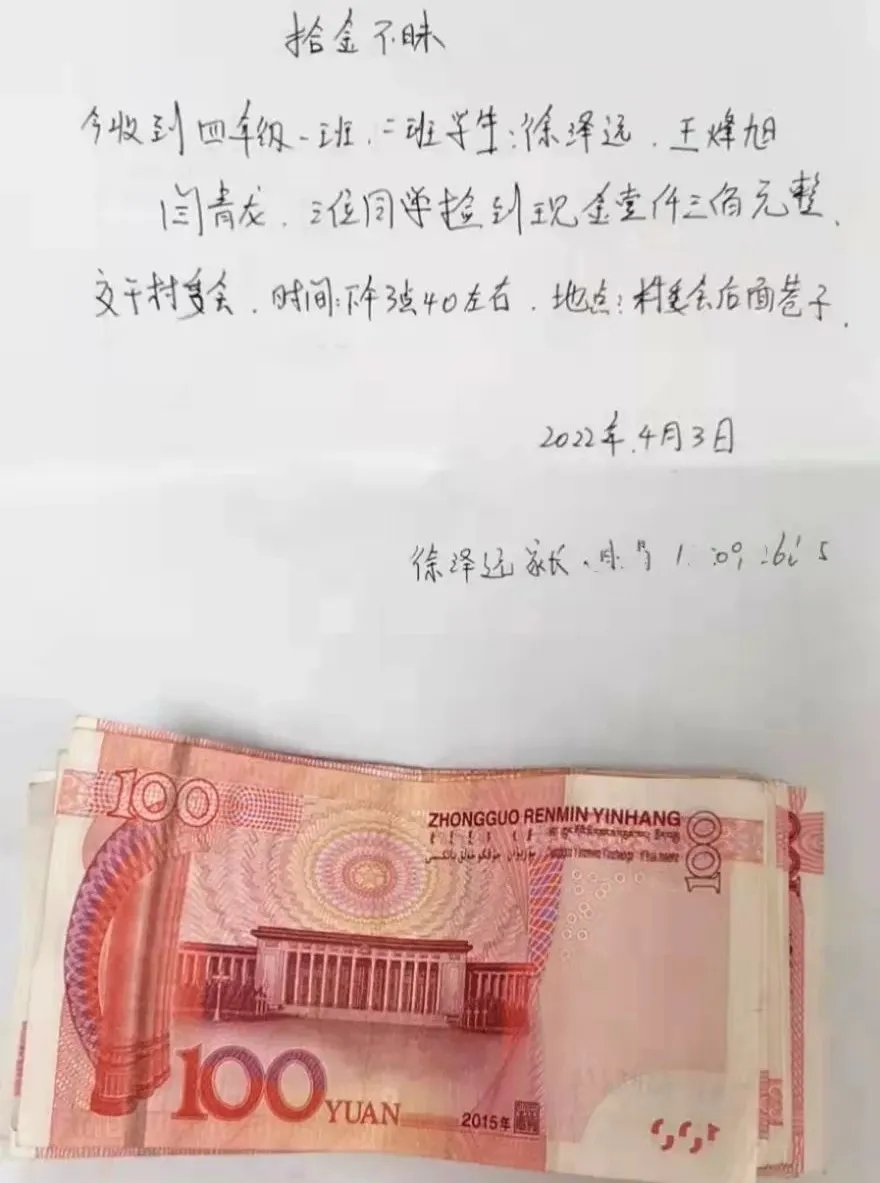 拾金不昧
今收到四年级一班.二班学生:徐泽远.王烽旭
闫青龙.三位同学捡到现金壹仟三佰元整.
交于村委会.时间:下午3点40左右.地点:村委会后面巷子.
2022年.4月3日
徐泽远家长.
100
ZHONGGUO RENMIN YINHANG
100
100 YUAN
2015年